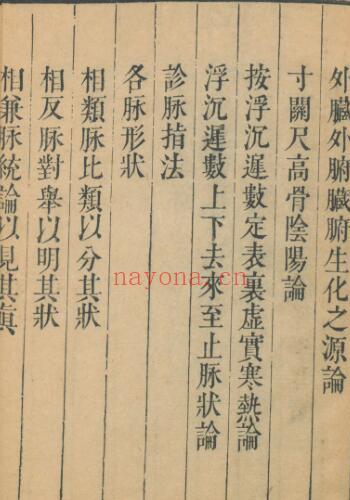 外臟外腑臟腑生化之源論
寸關尺高骨陰陽論
按浮沉遲數定表裏虛實寒熱論
浮沉遲數上下去來至止脉狀論
診脉指法
各脉形狀
相類脉比類以分其狀
相反脉對舉以明其狀
相兼脉統論以見其眞
nayona.cn